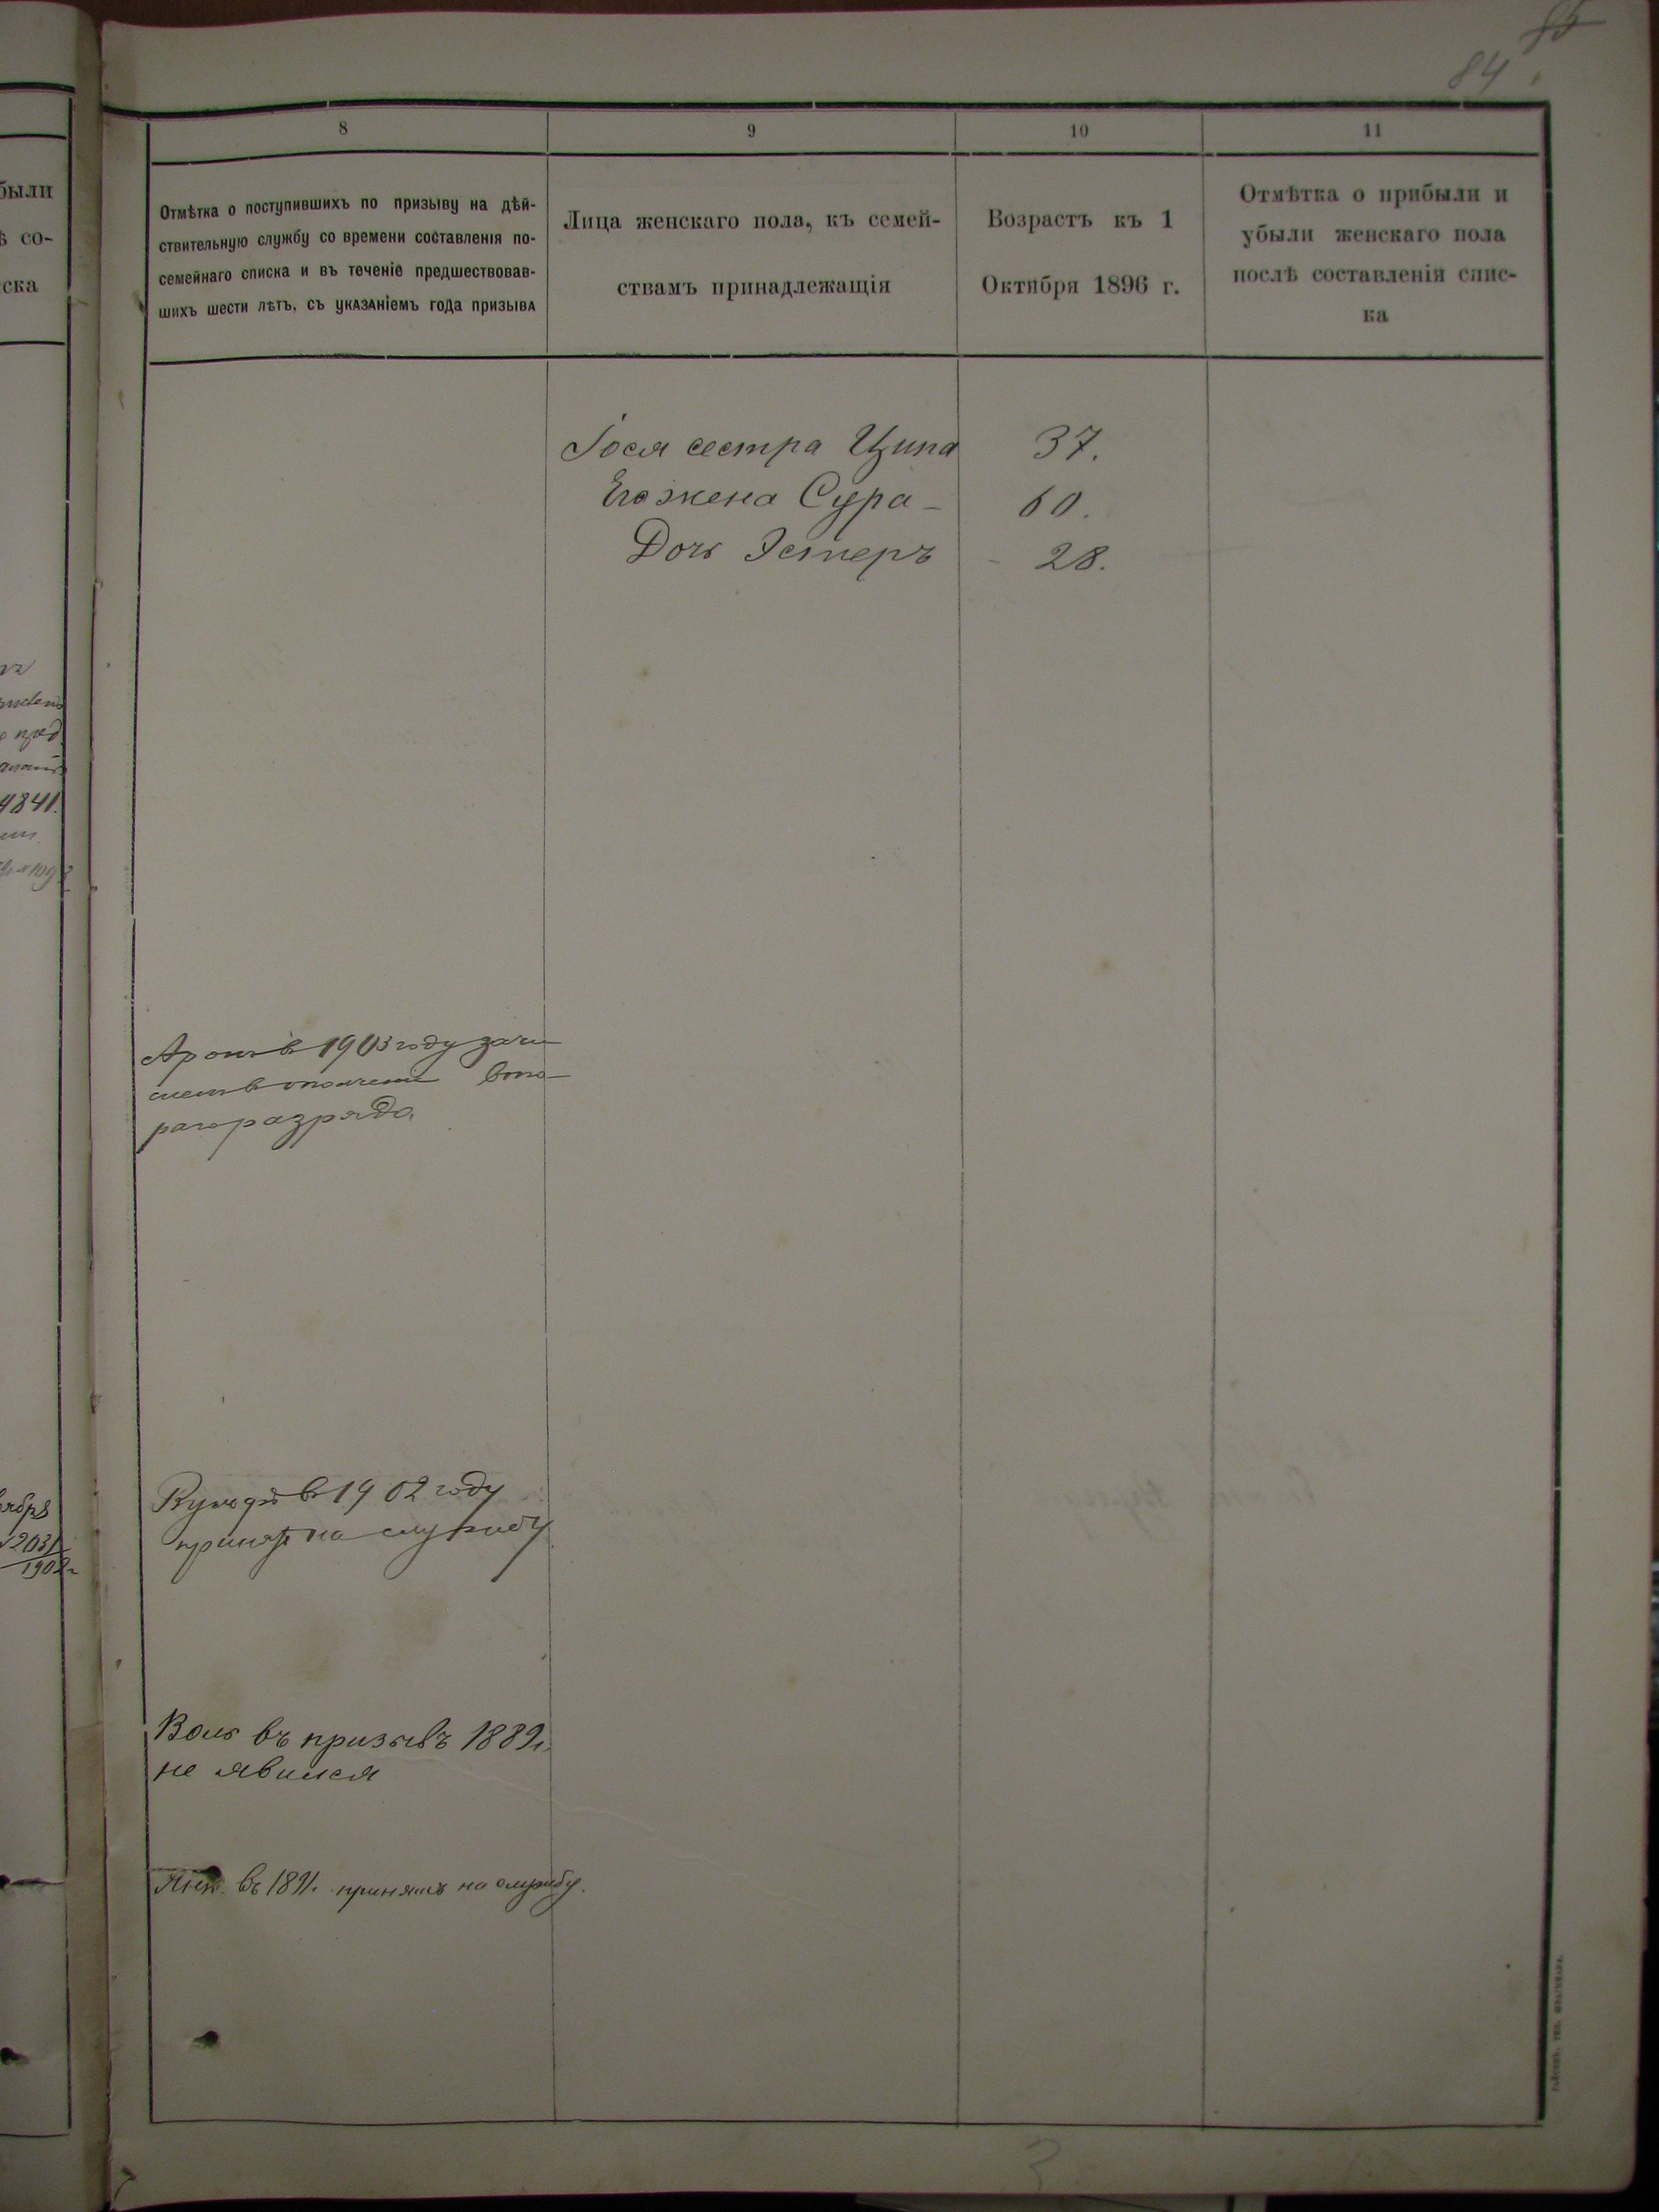 85
84
8
9
10
11
Отмѣтка о поступившихъ по призыву на дѣй-
ствительную службу со времени составленія по-
семейнаго списка и въ теченіе предшествовав-
шихъ шести лѣтъ, съ указаніемъ года призыва
Лица женскаго пола, къ семей-
ствамъ принадлежащія
Возрастъ къ 1
Октября 1896 г.
Отмѣтка о прибыли и
убыли женскаго пола
послѣ составленія спис-
ка
были
ѣ со-
ска
сестра Ципа 37.
Его жена Сура - 60.
Дочь Эстеръ - 28.
4841.
Аронъ в 1903 году зачи
сленъ в ополчение вто
раго разряда.
в 1902 году
принят на службу
ября
2031
1902 г
Воль въ призывъ 1889 г.
не явился
въ 1891 г. принятъ на службу.